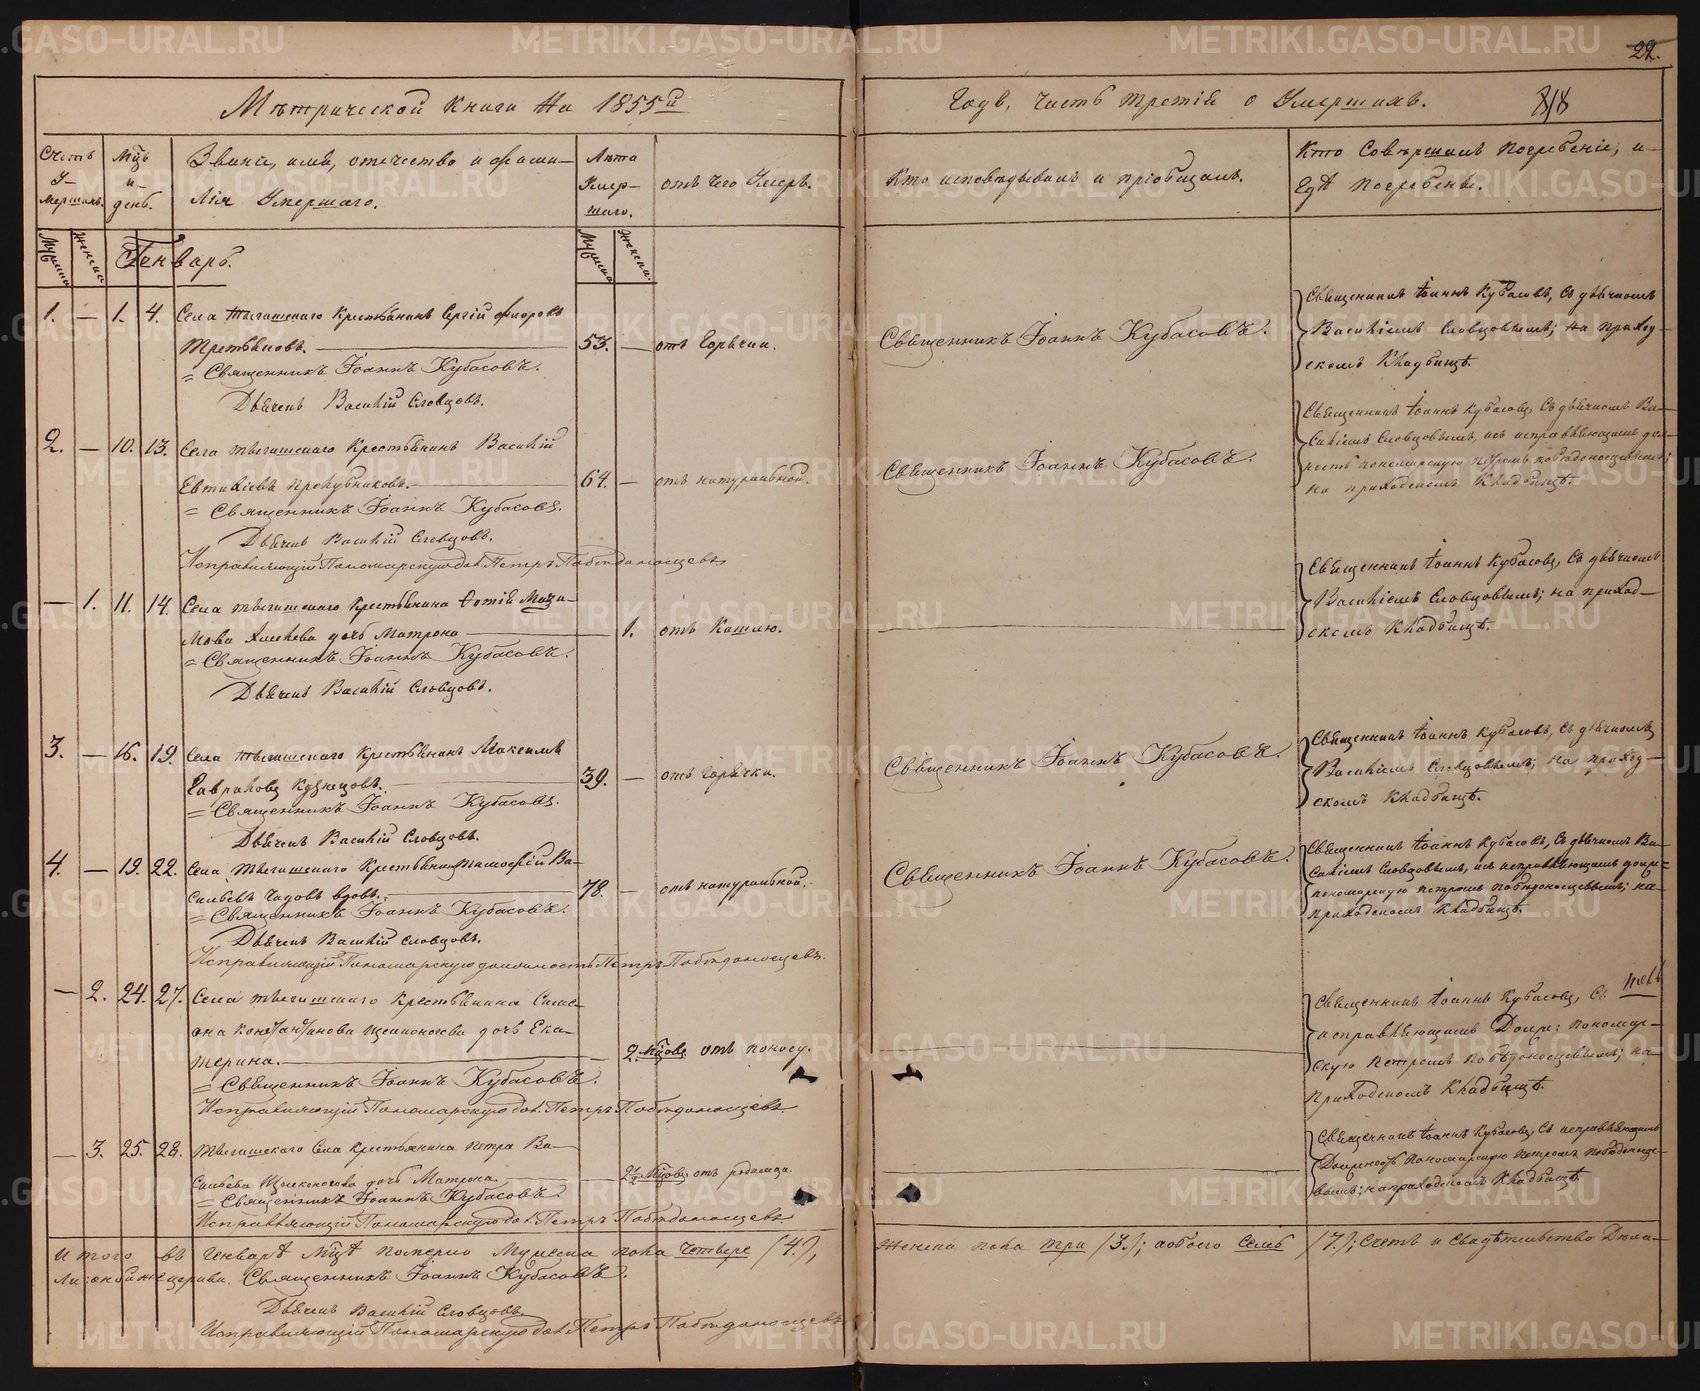 22.
Мѣтрической книги На 1855й
Годъ, часть третія о Умершихъ.
Счетъ У-мершихъ.
Мцъ и день.
Званіе, имя, отечество и фами-
лія Умершаго.
Лѣта Умер-шаго.
отъ чего Умеръ.
Кто исповѣдывалъ и пріобщалъ.
Кто Совершалъ Погребеніе, и
гдѣ погребены.
Мужеска
Женска
Генварь.
Мужеска
Женска.
1. — 1. 4. Села Тыгишскаго Крестьянинъ Сергій Фноровъ
Третьяковъ. 53. — отъ Горячки.
= Священникъ Іоаннъ Кубасовъ.
Дьячекъ Василій Словцовъ.
Священникъ Іоаннъ Кубасовъ.
Священникъ Іоаннъ Кубасовъ, съ дьячкомъ
Василіемъ Словцовымъ; на приход-
скомъ Кладбищѣ.
2. — 10. 13. Села тыгишскаго Крестьянинъ Василій
Евтихіевъ 64. — отъ натуральной.
= Священникъ Іоаннъ Кубасовъ.
Дьячекъ Василій Словцовъ.
Исправляющій Пономарскую дол. Петръ Побѣдоносцевъ
Священникъ Іоаннъ Кубасовъ.
Священникъ Іоаннъ Кубасовъ, съ дьячкомъ Ва-
силіемъ Словцовымъ, исправляющимъ дол-
ность пономарскую Петромъ Побѣдоносцевымъ;
на приходскомъ Кладбищѣ.
— 1. 11. 14. Села тыгишскаго Крестьянина Фотія Макси-
мова дочь Матрона 1. отъ Кашлю.
= Священникъ Іоаннъ Кубасовъ.
Дьячекъ Василій Словцовъ.
Священникъ Іоаннъ Кубасовъ, съ дьячкомъ
Василіемъ Словцовымъ; на приход-
скомъ Кладбищѣ.
3. — 16. 19. Села тыгишскаго Крестьянинъ Максимъ
Гавриловъ Кузнецовъ. 39. — отъ Горячки.
= Священникъ Іоаннъ Кубасовъ.
Дьячекъ Василій Словцовъ.
Священникъ Іоаннъ Кубасовъ.
Священникъ Іоаннъ Кубасовъ, съ дьячкомъ
Василіемъ Словцовымъ; на приход-
скомъ Кладбищѣ.
4. — 19. 22. Села Тыгишскаго Крестьянинъ Тимофѣй Ва-
сильевъ Чадовъ вдовъ. 78. — отъ натуральной.
= Священникъ Іоаннъ Кубасовъ.
Дьячекъ Василій Словцовъ.
Исправляющій Пономарскую должность Петръ Побѣдоносцевъ.
Священникъ Іоаннъ Кубасовъ.
Священникъ Іоаннъ Кубасовъ, съ дьячкомъ Ва-
силіемъ Словцовымъ, исправляющимъ
пономарскую Петромъ Побѣдоносцевымъ; на
приходскомъ Кладбищѣ.
— 2. 24. 27. Села тыгишскаго Крестьянина Симе-
она Константинова Щелконогова дочь Ека-
терина. 2. Мцовъ отъ поносу.
= Священникъ Іоаннъ Кубасовъ.
Исправляющій Пономарскую дол. Петръ Побѣдоносцевъ
Священникъ Іоаннъ Кубасовъ, съ
исправляющимъ Долж: пономар-
скую Петромъ Побѣдоносцевымъ; на
приходскомъ Кладбищѣ.
— 3. 25. 28. Тыгишскаго Села Крестьянина Петра Ва-
сильева Щелконогова дочь Матрона 2½ Мцовъ отъ родимца.
= Священникъ Іоаннъ Кубасовъ.
Исправляющій Пономарскую дол. Петръ Побѣдоносцевъ
Священникъ Іоаннъ Кубасовъ, съ исправляющимъ
Должность пономарскую Петромъ Побѣдоносце-
вымъ; на приходскомъ Кладбищѣ
Итого въ Генварѣ Мцѣ померло Мужеска пола четвере (4.),
Женска пола три (3.); а обоего Семь (7.);
Священникъ Іоаннъ Кубасовъ.
Дьячекъ Василій Словцовъ.
Исправляющій Пономарскую дол. Петръ Побѣдоносцевъ
METRIKI.GASO-URAL.RU